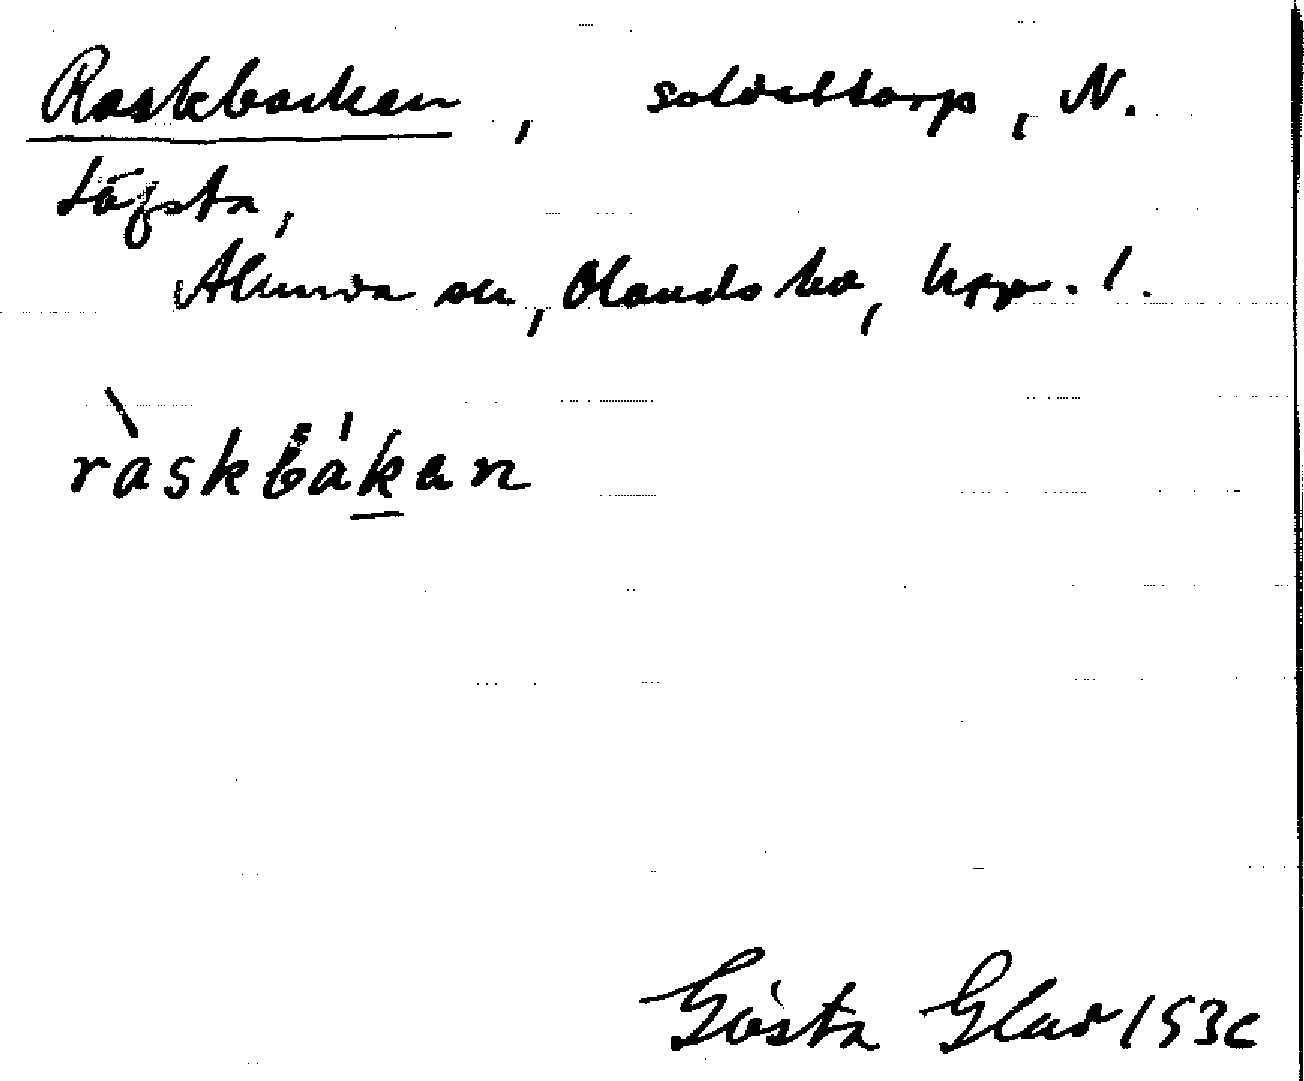 Raskbacken, soldattorp, N.
Löfsta,
Alunda sn, Olands hd, Upps. l.
ràskbákan
Gösta Glad 1930